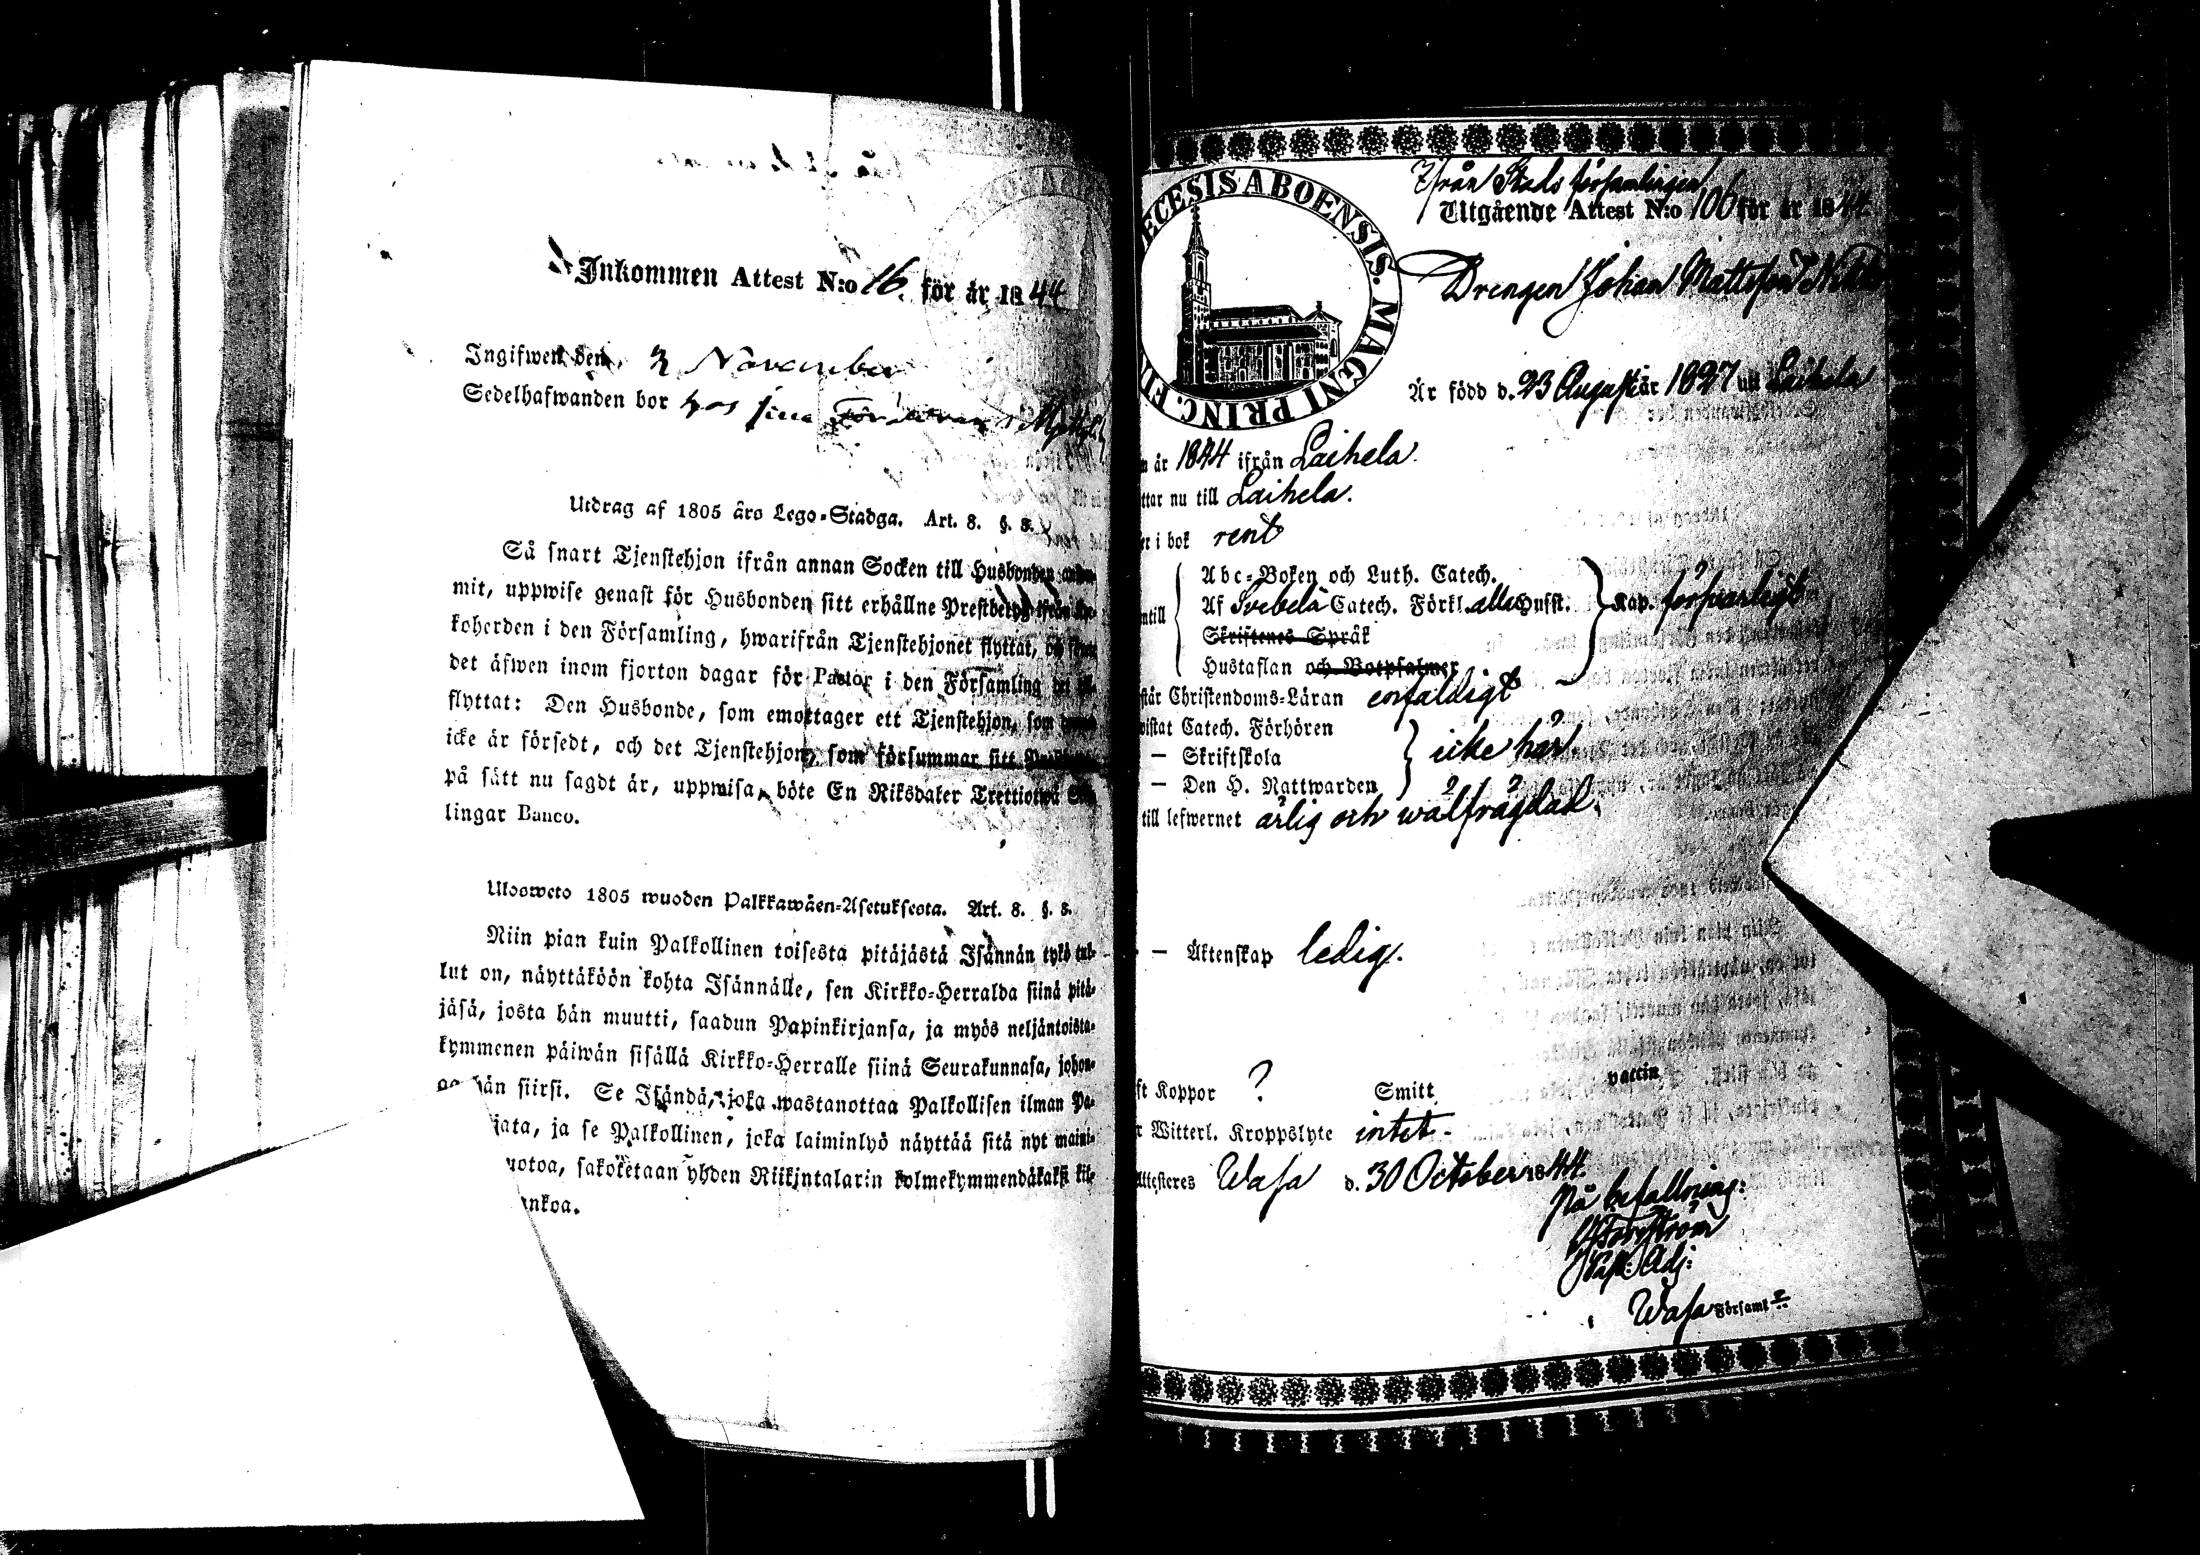 Inkommen Attest N:o 16. för år 1844
Ingifwen den 3 November
Sedelhafwanden bor hos sina Föräldrar
Utdrag af 1805 års Lego-Stadga. Art. 8. §. 8.
Så snart Tjenstehjon ifrån annan Socken till Husbonden
mit, uppwise genast för Husbonden sitt erhållne Prestbetyg ifrån
koherden i den Församling, hwarifrån Tjenstehjonet flyttat, och
det äfwen inom fjorton dagar för Pastor i den Församling det
flyttat: Den Husbonde, som emottager ett Tjenstehjon, som
icke är försedt, och det Tjenstehjon, som försummar sitt
på sätt nu sagdt är, uppwisa, böte En Riksdaler Trettiotwå
lingar Banco.
Ulosweto 1805 wuoden Palkkawäen-Asetuksesta. Art. 8. §. 8.
Niin pian kuin Palkollinen toisesta pitäjästä Isännän tykö tul-
lut on, näyttäköön kohta Isännälle, sen Kirkko-Herralda siinä pitä-
jäsä, josta hän muutti, saadun Papinkirjansa, ja myös neljäntoista-
kymmenen päiwän sisällä Kirkko-Herralle siinä Seurakunnasa, johon-
hän siirsi. Se Isändä, joka wastanottaa Palkollisen ilman Pa-
jata, ja se Palkollinen, joka laiminlyö näyttää sitä nyt maini-
uotoa, sakoitetaan yhden Riikintalarin kolmekymmendäkaksi kil-
ankoa.
ECESIS ABOENSIS. MAGNI PRINC. FI
Ifrån Stads församlingen
Utgående Attest N:o 106 för år 1844.
Drengen Johan Mattsson
Är född d. 23 Augusti år 1827 uti Laihela
n år 1844 ifrån Laihela.
ttar nu till Laihela.
er i bok rent
Abc-Boken och Luth. Catech.
ntill Af Svebelii Catech. Förkl. alla Hufst. Kap. försvarligt
Skriftenes Språk
Hustaflan och Botpsalmer
står Christendoms-Läran enfaldigt
wistat Catech. Förhören
— Skriftskola icke här
— Den H. Nattwarden
till lefwernet ärlig och wälfrägdad.
— Äktenskap ledig.
ft Koppor ? Smitt vaccin
r Witterl. Kroppslyte intet.
Attesteres Wasa d. 30 October 1844.
På befallning:
Past: Adj:
Wasa Församl